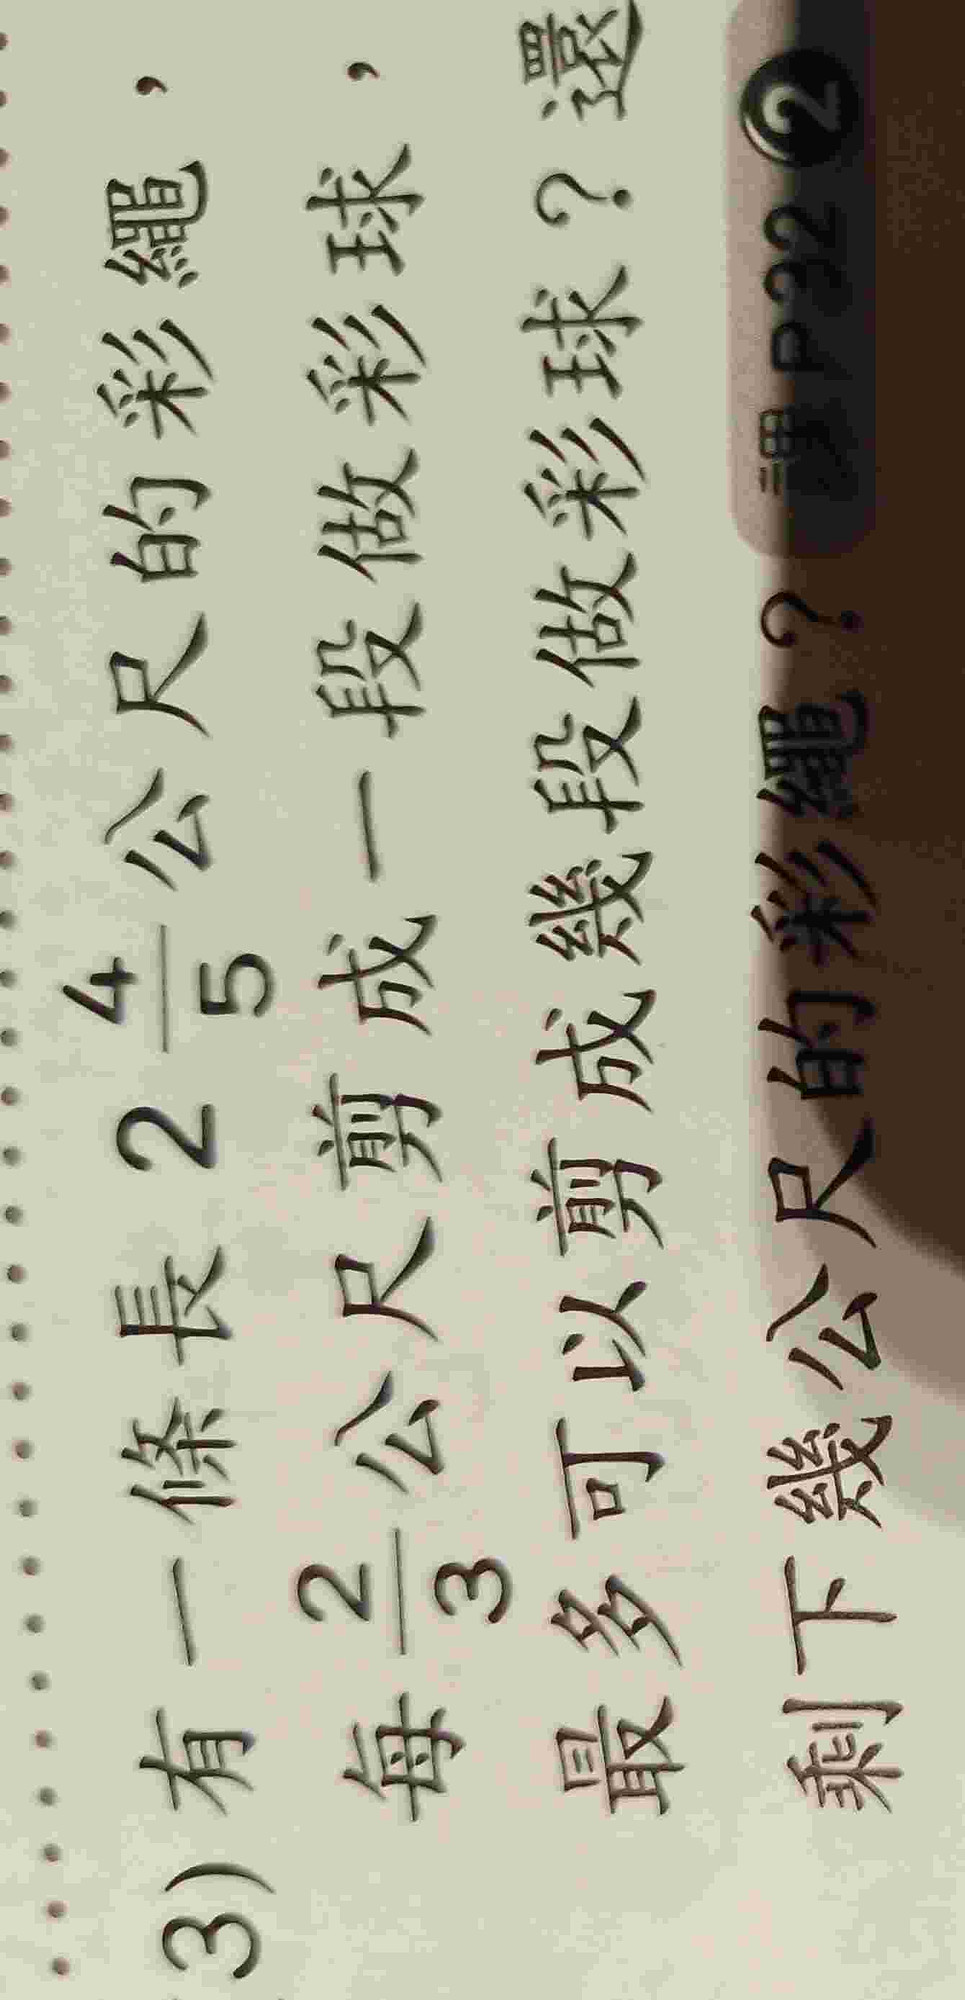 3) 有一條長 2 4/5 公尺的彩繩，
每 2/3 公尺剪成一段做彩球，
最多可以剪成幾段做彩球？還
剩下幾公尺的彩繩？ 課 P32 ②